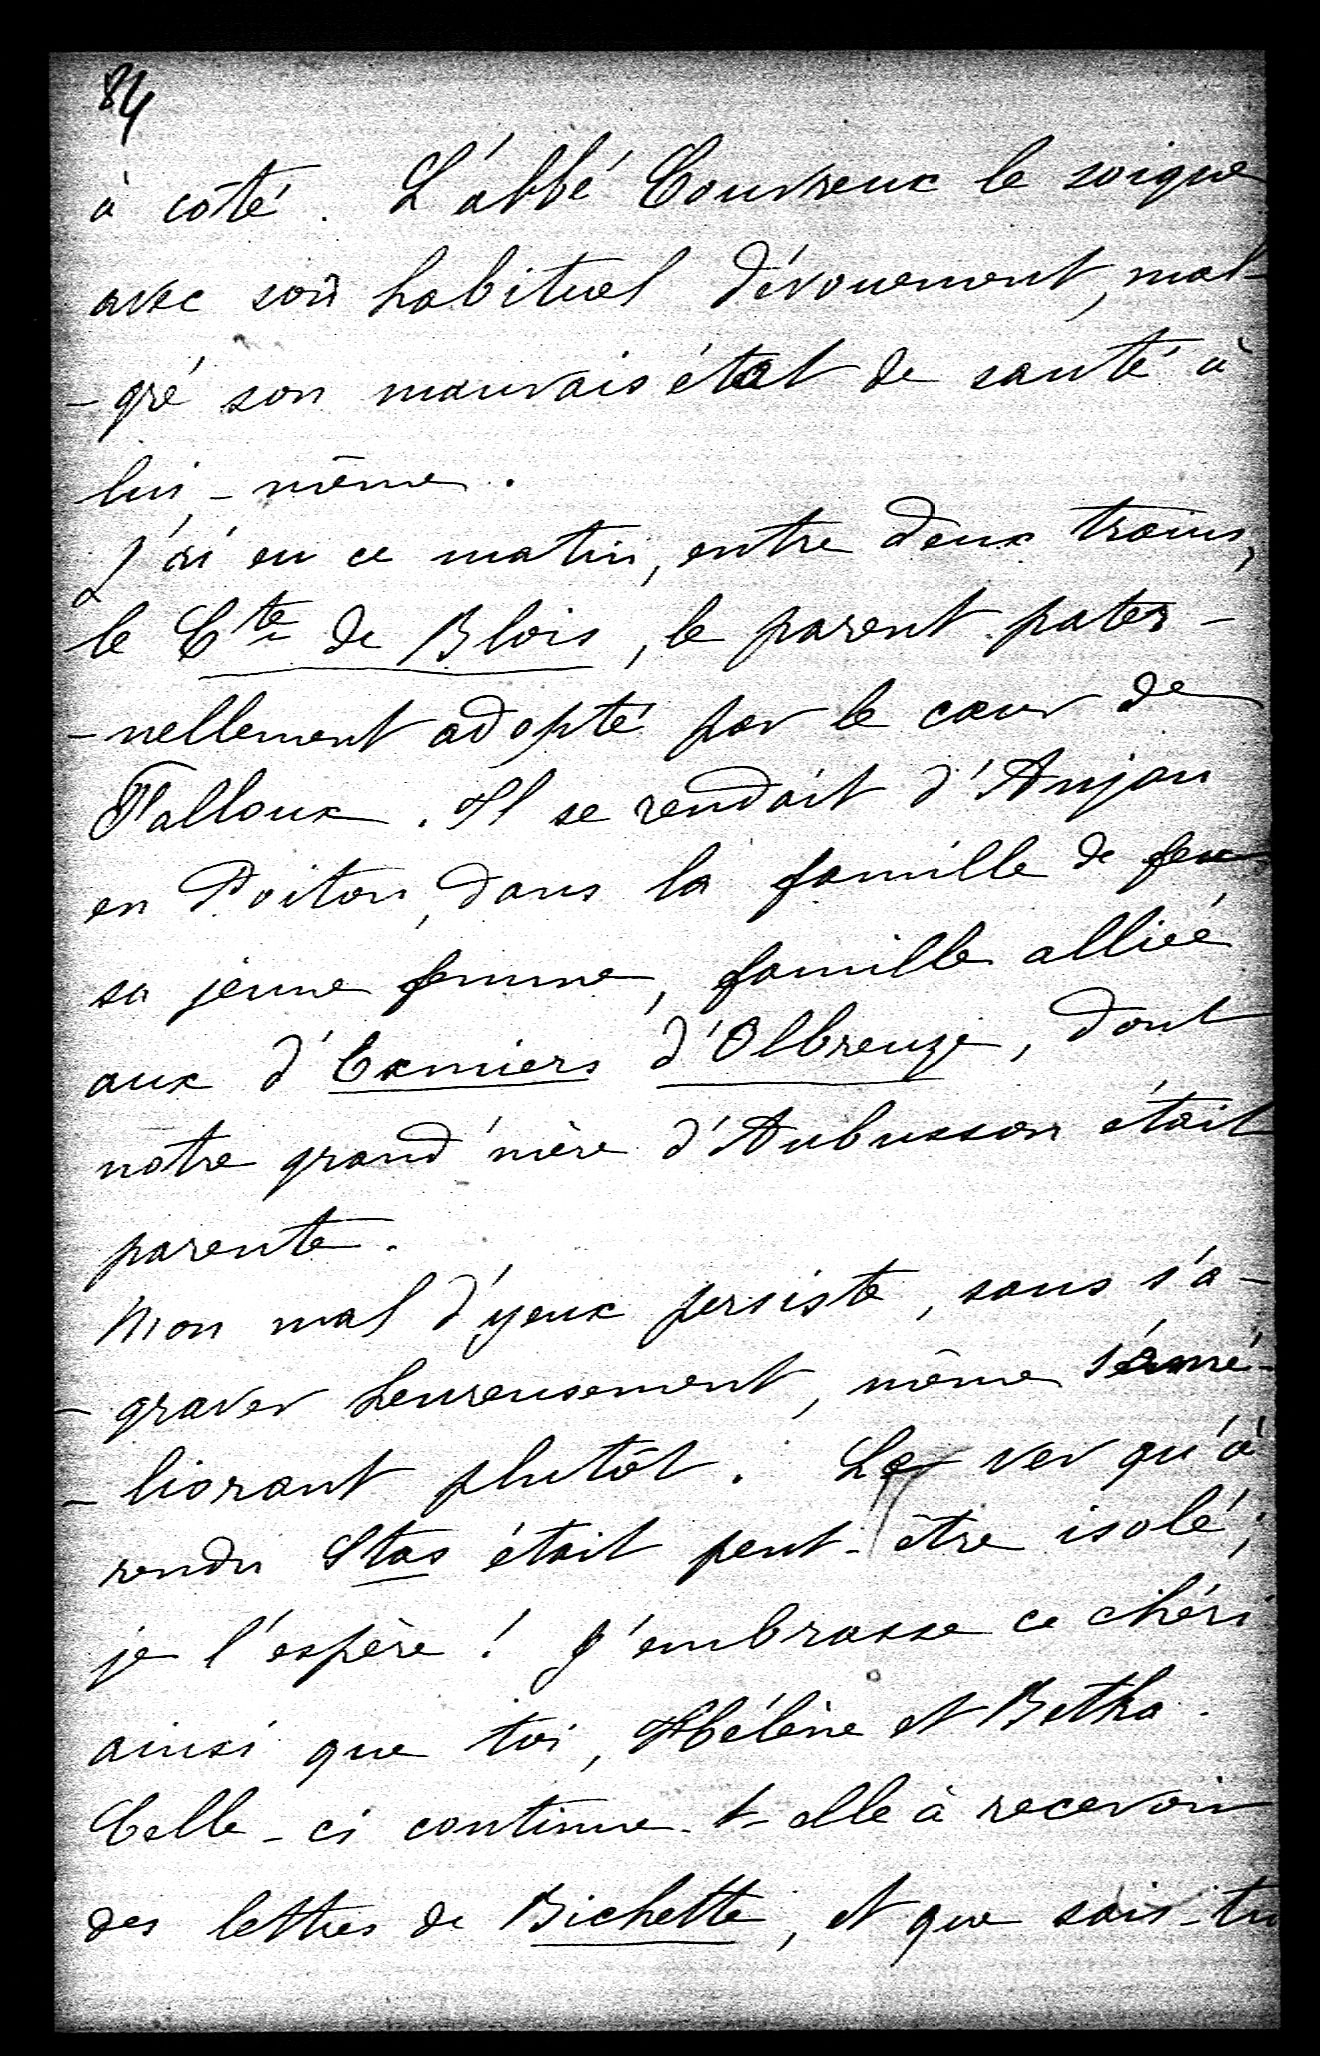 84
à côté. L'abbé Couvreux le soigne
avec son habituel dévouement, mal-
-gré son mauvais état de santé à
lui-même.
J'ai eu ce matin, entre deux trains,
le Cte de Blois, le parent pater-
-nellement adopté par le cœur de
Falloux. Il se rendait d'Anjou
en Poitou, dans la famille de feue
sa jeune femme, famille alliée
aux d'Exmiers d'Olbreuze, dont
notre grand'mère d'Aubusson était
parente.
Mon mal d'yeux persiste, sans s'a-
-graver heureusement, même s'amé-
-liorant plutôt. Le ver qu'a
rendu Stas était peut-être isolé;
je l'espère! J'embrasse ce chéri
ainsi que toi, Hélène et Betka.
Celle-ci continue-t-elle à recevoir
des lettres de Bichette, et que sais-tu